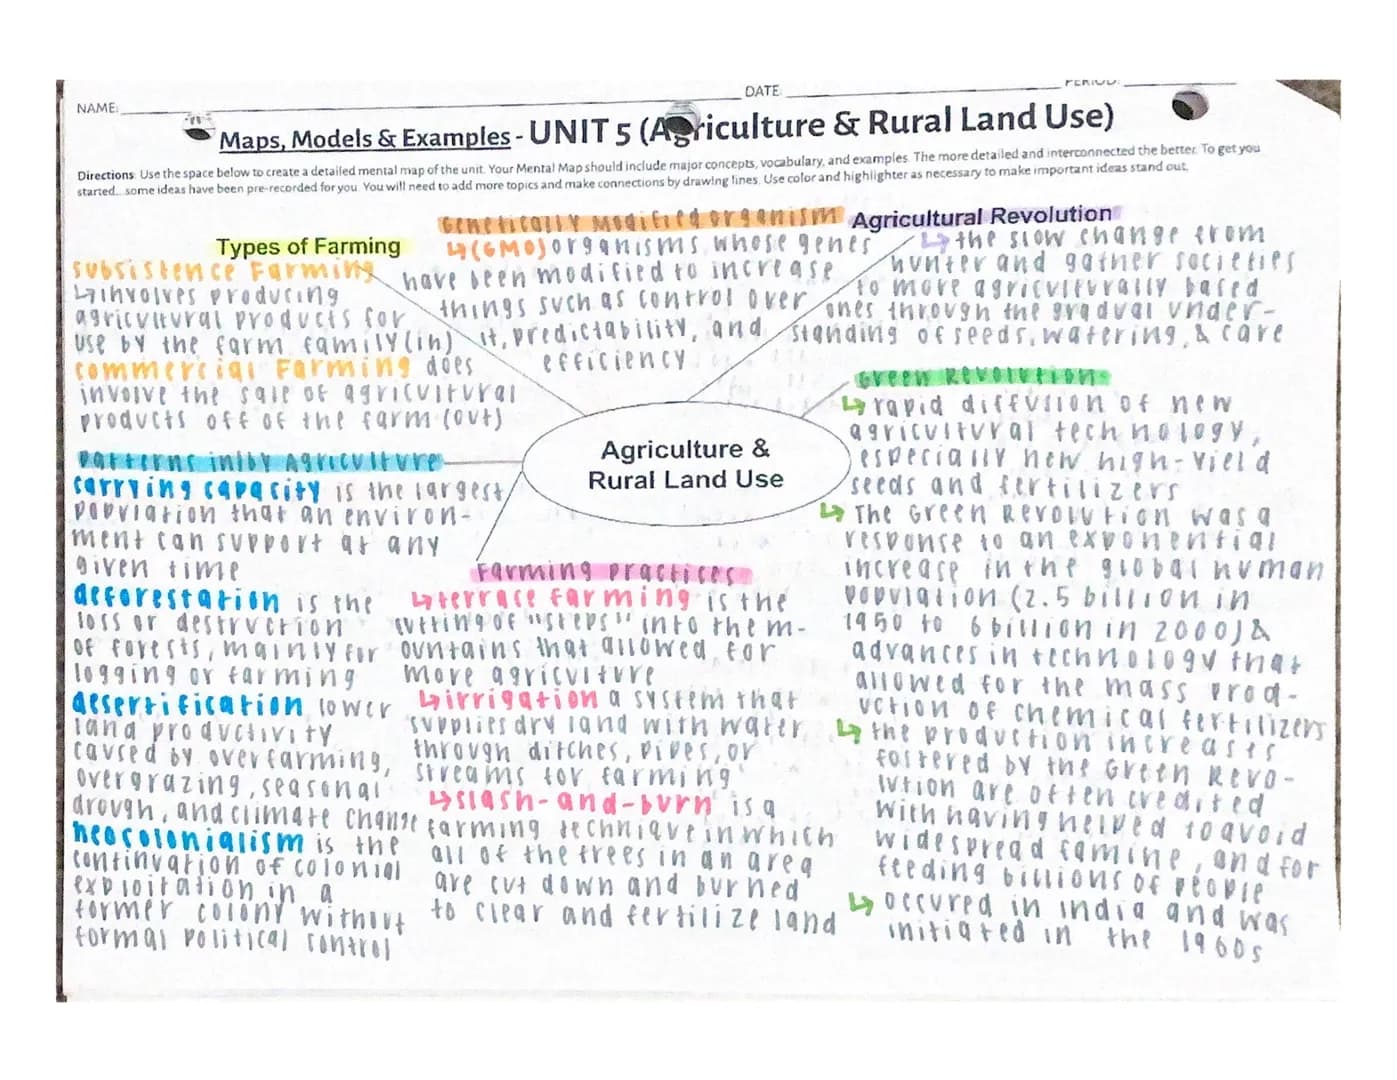 NAME: DATE: PERIOD:
Maps, Models & Examples - UNIT 5 (Agriculture & Rural Land Use)
Directions: Use the space below to create a detailed mental map of the unit. Your Mental Map should include major concepts, vocabulary, and examples. The more detailed and interconnected the better. To get you
started... some ideas have been pre-recorded for you. You will need to add more topics and make connections by drawing lines. Use color and highlighter as necessary to make important ideas stand out.
Types of Farming
subsistence Farming
↳involves producing
agricultural products for
use by the farm family (in)
commercial Farming does
involve the sale of agricultural
products off of the farm (out)
Genetically Modified organism
↳(GMO) organisms whose genes
have been modified to increase
things such as control over
it, predictability, and
efficiency.
Agricultural Revolution
↳ the slow change from
hunter and gather societies
to more agriculturally based
ones through the gradual under-
standing of seeds, watering, & care
Green Revolution
↳ rapid diffusion of new
agricultural technology,
especially new high-yield
seeds and fertilizers
↳ The Green Revolution was a
response to an exponential
increase in the global human
population (2.5 billion in
1950 to 6 billion in 2000) &
advances in technology that
allowed for the mass prod-
uction of chemical fertilizers
↳ the production increases
fostered by the Green Revo-
lution are often credited
with having helped to avoid
widespread famine, and for
feeding billions of people
↳ occured in india and was
initiated in the 1960s
Agriculture &
Rural Land Use
Patterns in/by Agriculture
carrying capacity is the largest
population that an environ-
ment can support at any
given time
deforestation is the
loss or destruction
of forests, mainly for
logging or farming
desertification lower
land productivity
caused by overfarming,
overgrazing, seasonal
drough, and climate change
neocolonialism is the
continuation of colonial
exploitation in a
former colony without
formal political control
Farming practices
↳terrace farming is the
cutting of "steps" into the m-
ountains that allowed for
more agriculture
↳irrigation a system that
supplies dry land with water
through ditches, pipes, or
streams for farming
↳slash-and-burn is a
farming technique in which
all of the trees in an area
are cut down and burned
to clear and fertilize land